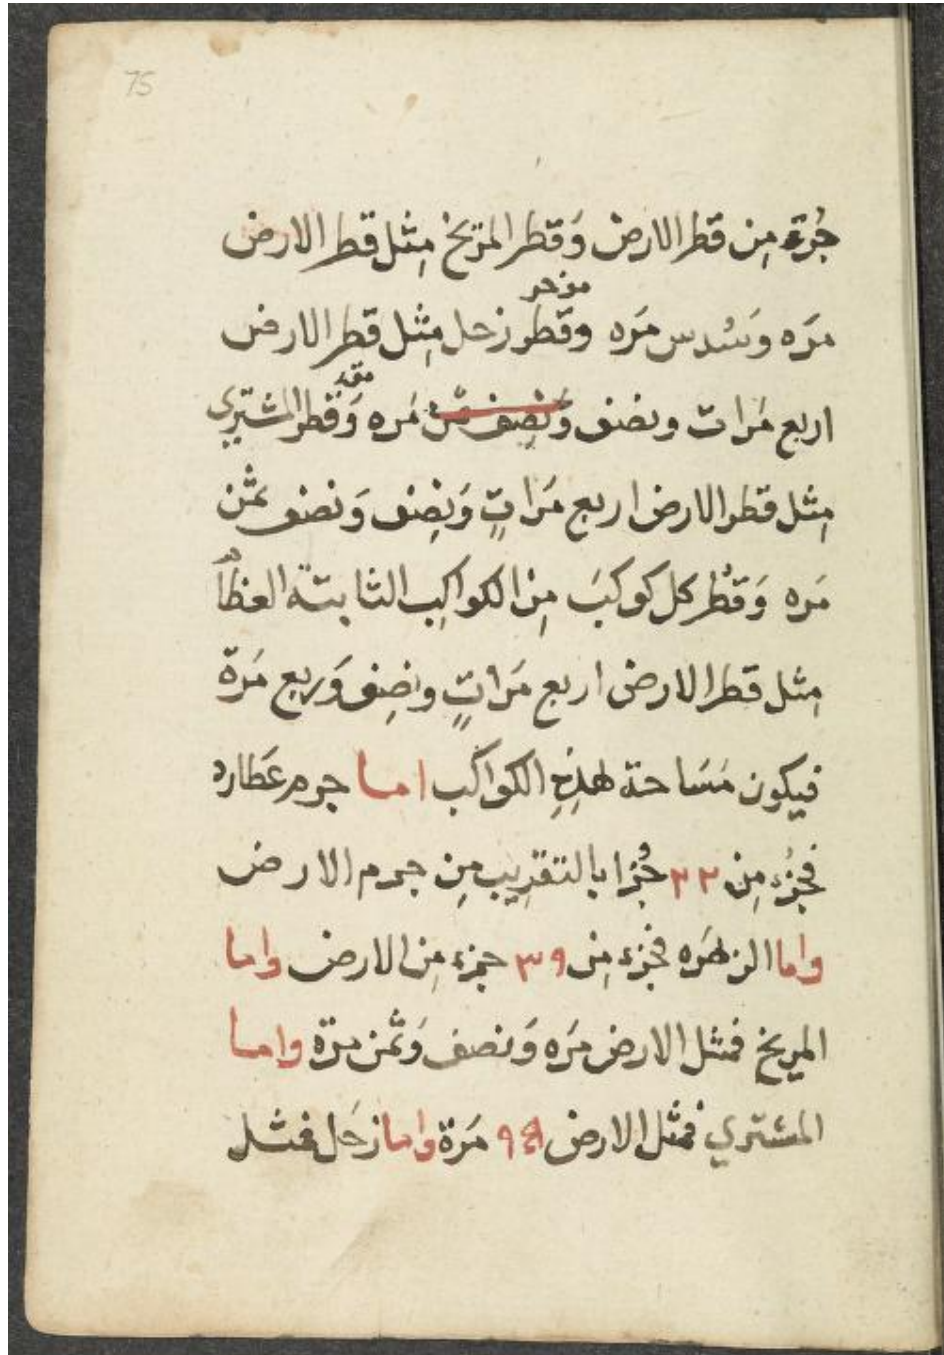 75
جُزءٍ مِن قطر الارض وَقطر المريخ مِثل قطر الارض
موخر
مَره وَسُدس مَره وقطر زحل مِثل قطر الارض
مقدم
اربع مَرات ونصف وَنِصف ثمن مَره وَقطر المشتري
مِثل قطر الارض اربع مَراتٍ وَنِصف وَنصف ثمن
مَره وَقطُر كل كوكبَ مِن الكواكِب الثابتة العظام
مِثل قطر الارض اربع مَراتٍ ونِصِف وَربع مَرة
فيكون مَسَاحة هذِهِ الكواكب اما جرم عَطارد
فجُزء مِن ٢٢ جُزا بالتقرِيب مِن جرم الارض
واما الزهَره فجزء مِن ٣٩ جزء مِن الارض واما
المريخ فمثل الارض مَره وَنصف وَثمن مرّة واما
المشتري فمثل الارض ٩٤ مَرة واما زحَل فمثل